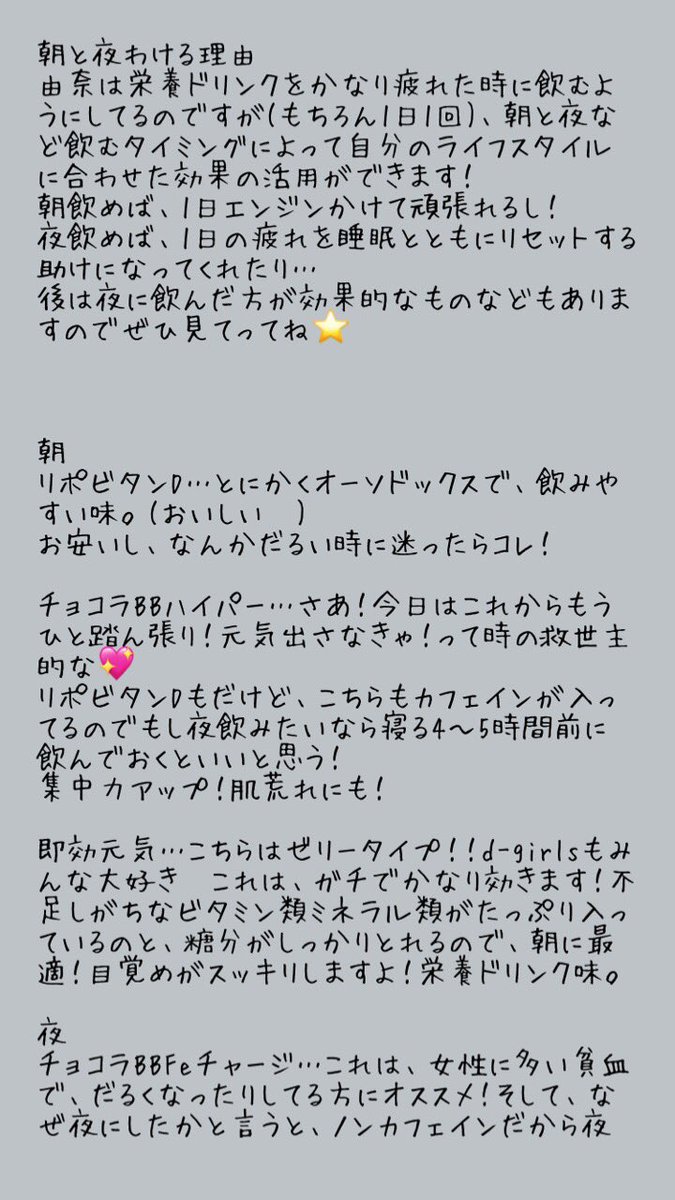 朝と夜わける理由
由奈は栄養ドリンクをかなり疲れた時に飲むよ
うにしてるのですが(もちろん1日1回)、朝と夜な
ど飲むタイミングによって自分のライフスタイル
に合わせた効果の活用ができます!
朝飲めば、1日エンジンかけて頑張れるし!
夜飲めば、1日の疲れを睡眠とともにリセットする
助けになってくれたり…
後は夜に飲んだ方が効果的なものなどもありま
すのでぜひ見てってね⭐
朝
リポビタンD…とにかくオーソドックスで、飲みや
すい味。(おいしい　)
お安いし、なんかだるい時に迷ったらコレ!
チョコラBBハイパー…さあ!今日はこれからもう
ひと踏ん張り!元気出さなきゃ!って時の救世主
的な💖
リポビタンDもだけど、こちらもカフェインが入っ
てるのでもし夜飲みたいなら寝る4〜5時間前に
飲んでおくといいと思う!
集中力アップ!肌荒れにも!
即効元気…こちらはゼリータイプ!!d-girlsもみ
んな大好き　これは、ガチでかなり効きます!不
足しがちなビタミン類ミネラル類がたっぷり入っ
ているのと、糖分がしっかりとれるので、朝に最
適!目覚めがスッキリしますよ!栄養ドリンク味。
夜
チョコラBBFeチャージ…これは、女性に多い貧血
で、だるくなったりしてる方にオススメ!そして、な
ぜ夜にしたかと言うと、ノンカフェインだから夜